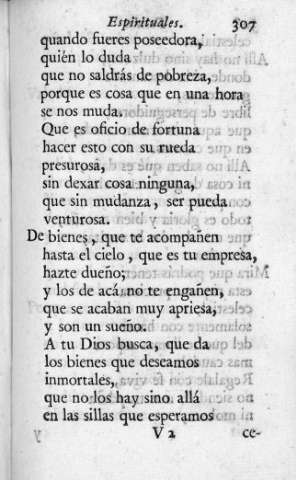 Espirituales. 307
quando fueres poseedora,
quién lo duda
que no saldrás de pobreza,
porque es cosa que en una hora
se nos muda.
Que es oficio de fortuna
hacer esto con su rueda
presurosa,
sin dexar cosa ninguna,
que sin mudanza, ser pueda
venturosa.
De bienes, que te acompañen
hasta el cielo, que es tu empresa,
hazte dueño;
y los de acá no te engañen,
que se acaban muy apriesa,
y son un sueño.
A tu Dios busca, que da
los bienes que deseamos
inmortales,
que no los hay sino allá
en las sillas que esperamos
V 2 ce-